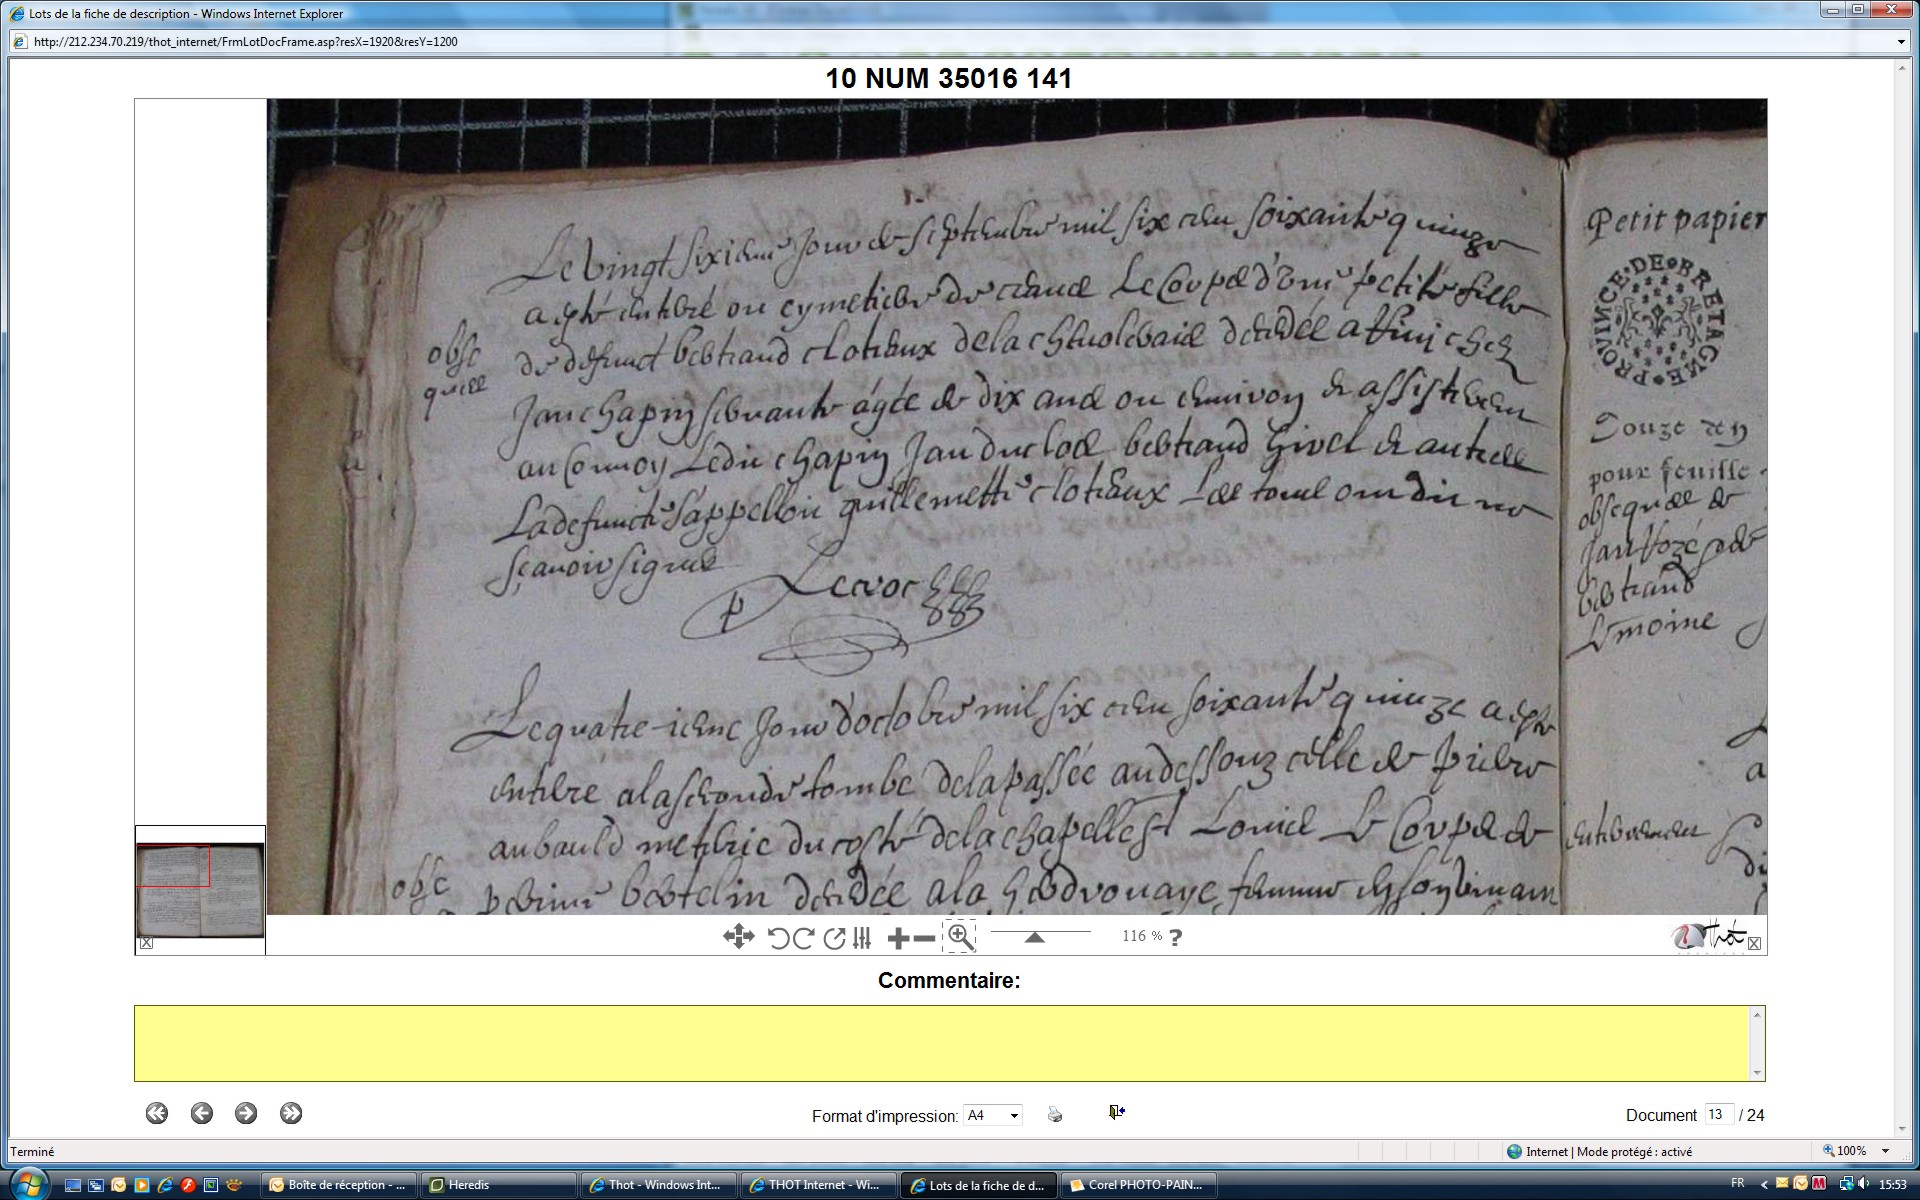 Lots de la fiche de description - Windows Internet Explorer
http://212.234.70.219/thot_internet/FrmLotDocFrame.asp?resX=1920&resY=1200
10 NUM 35016 141
Le vingt sixieme jour de septembre mil six cen soixante quinze
a esté enteré ou cymetiere de ceans Le Corps d'une petite fille
obse
quell
de defunct bertrand cloteaux de la decedée chez
Jan chapin servante agée de dix ans ou environ et assisterent
au Convoy Ledit chapin Jan duclos bertrand et autres
La defuncte s'appelloit guillemette cloteaux Les tous ont dit ne
sçavoir signer
Le quatrieme jour d'octobre mil six cen soixante quinze a esté
enterré a la seconde tombe de la passée au dessouz celle de Pierre
aubauld du costé de la chapelle st Louis Le Corps de
obse
decedée a la femme en son vivant
Petit papier
PROVINCE DE BRETAGNE
Douze dn
pour feuille
obseques de
Jan
bertrand
Lemoine
enterrement
116 % ?
Thot
Commentaire:
Format d'impression: A4
Document 13 / 24
Terminé
Internet | Mode protégé : activé
100%
Boîte de réception - ...
Heredis
Thot - Windows Int...
THOT Internet - Wi...
Lots de la fiche de d...
Corel PHOTO-PAIN...
FR
15:53